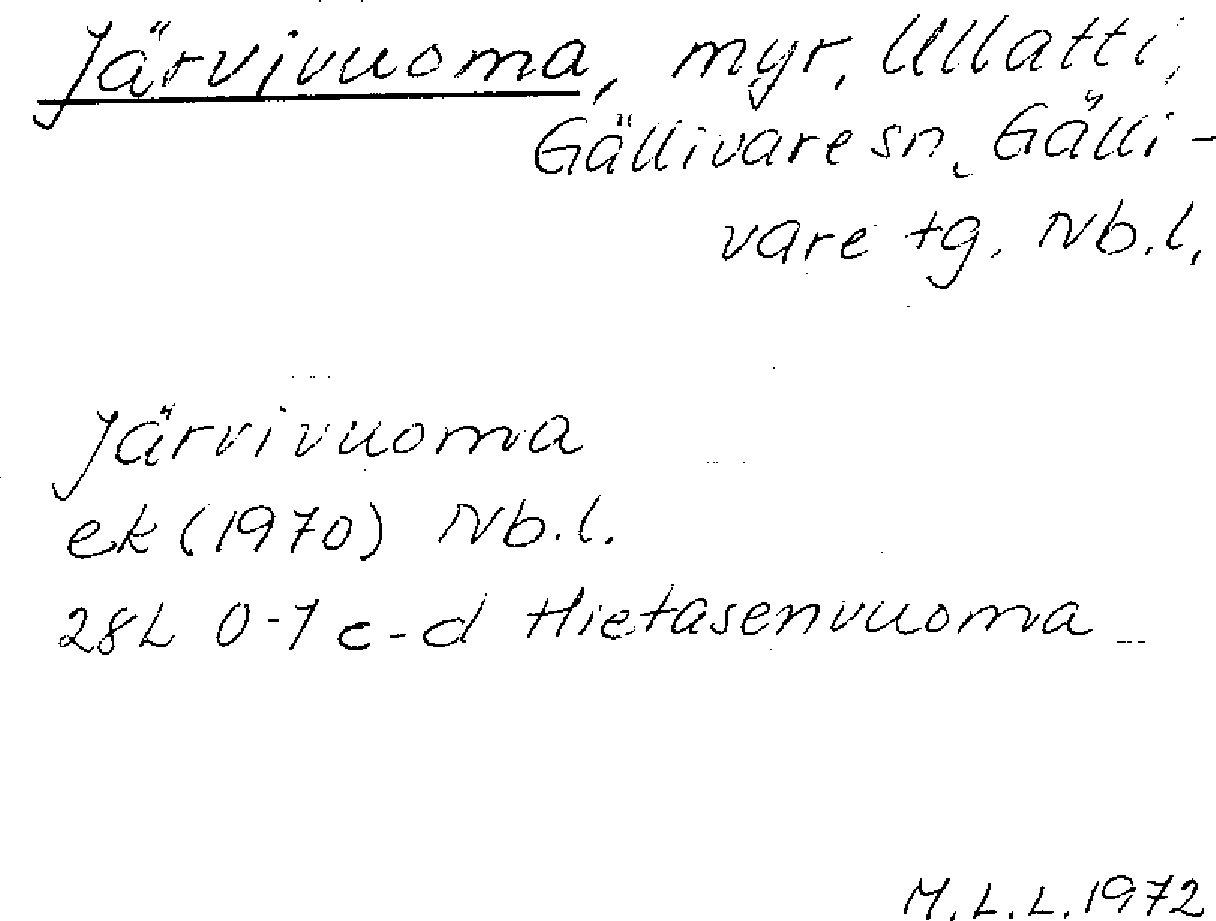 Järvivuoma, myr, Ullatti,
Gällivare sn, Gälli-
vare tg. Nb.l.
Järvivuoma
ek (1970) Nb.l.
28L 0-1 c-d Hietasenvuoma
M.L.L. 1972